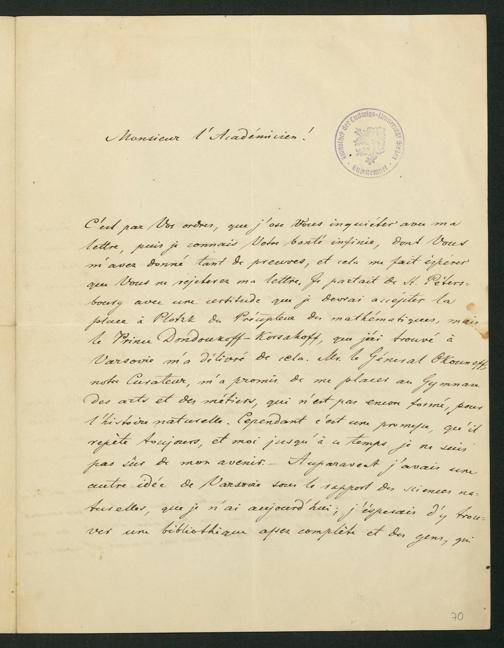 Monsieur l'Académicien!
C'est par Vos ordres, que j'ose Vous inquiéter avec ma
lettre, puis je connais Votre bonté infinie, dont Vous
m'avez donné tant de preuves, et cela me fait espérer
que Vous ne rejeterez ma lettre. Je partait de St. Péters-
bourg avec une certitude que je devrai accépter la
place à Plotzk du Précepteur des mathématiques, mais
le Prince Dondoukoff-Korsakoff, que j'ai trouvé à
Varsovie m'a délivré de cela. Mr. le Général Okouneff
notre Curateur, m'a promis de me placer au Gymnase
des arts et des métiers, qui n'est pas encore formé, pour
l'histoire naturelle. Cependant c'est une promesse, qu'il
repète toujours, et moi jusqu'à ce temps je ne suis
pas sûr de mon avenir. – Auparavent j'avais une
autre idée de Varsovie sous le rapport des sciences na-
turelles, que je n'ai aujourd'hui; j'éspérais d'y trou-
ver une bibliothèque assez complète et des gens, qui
70